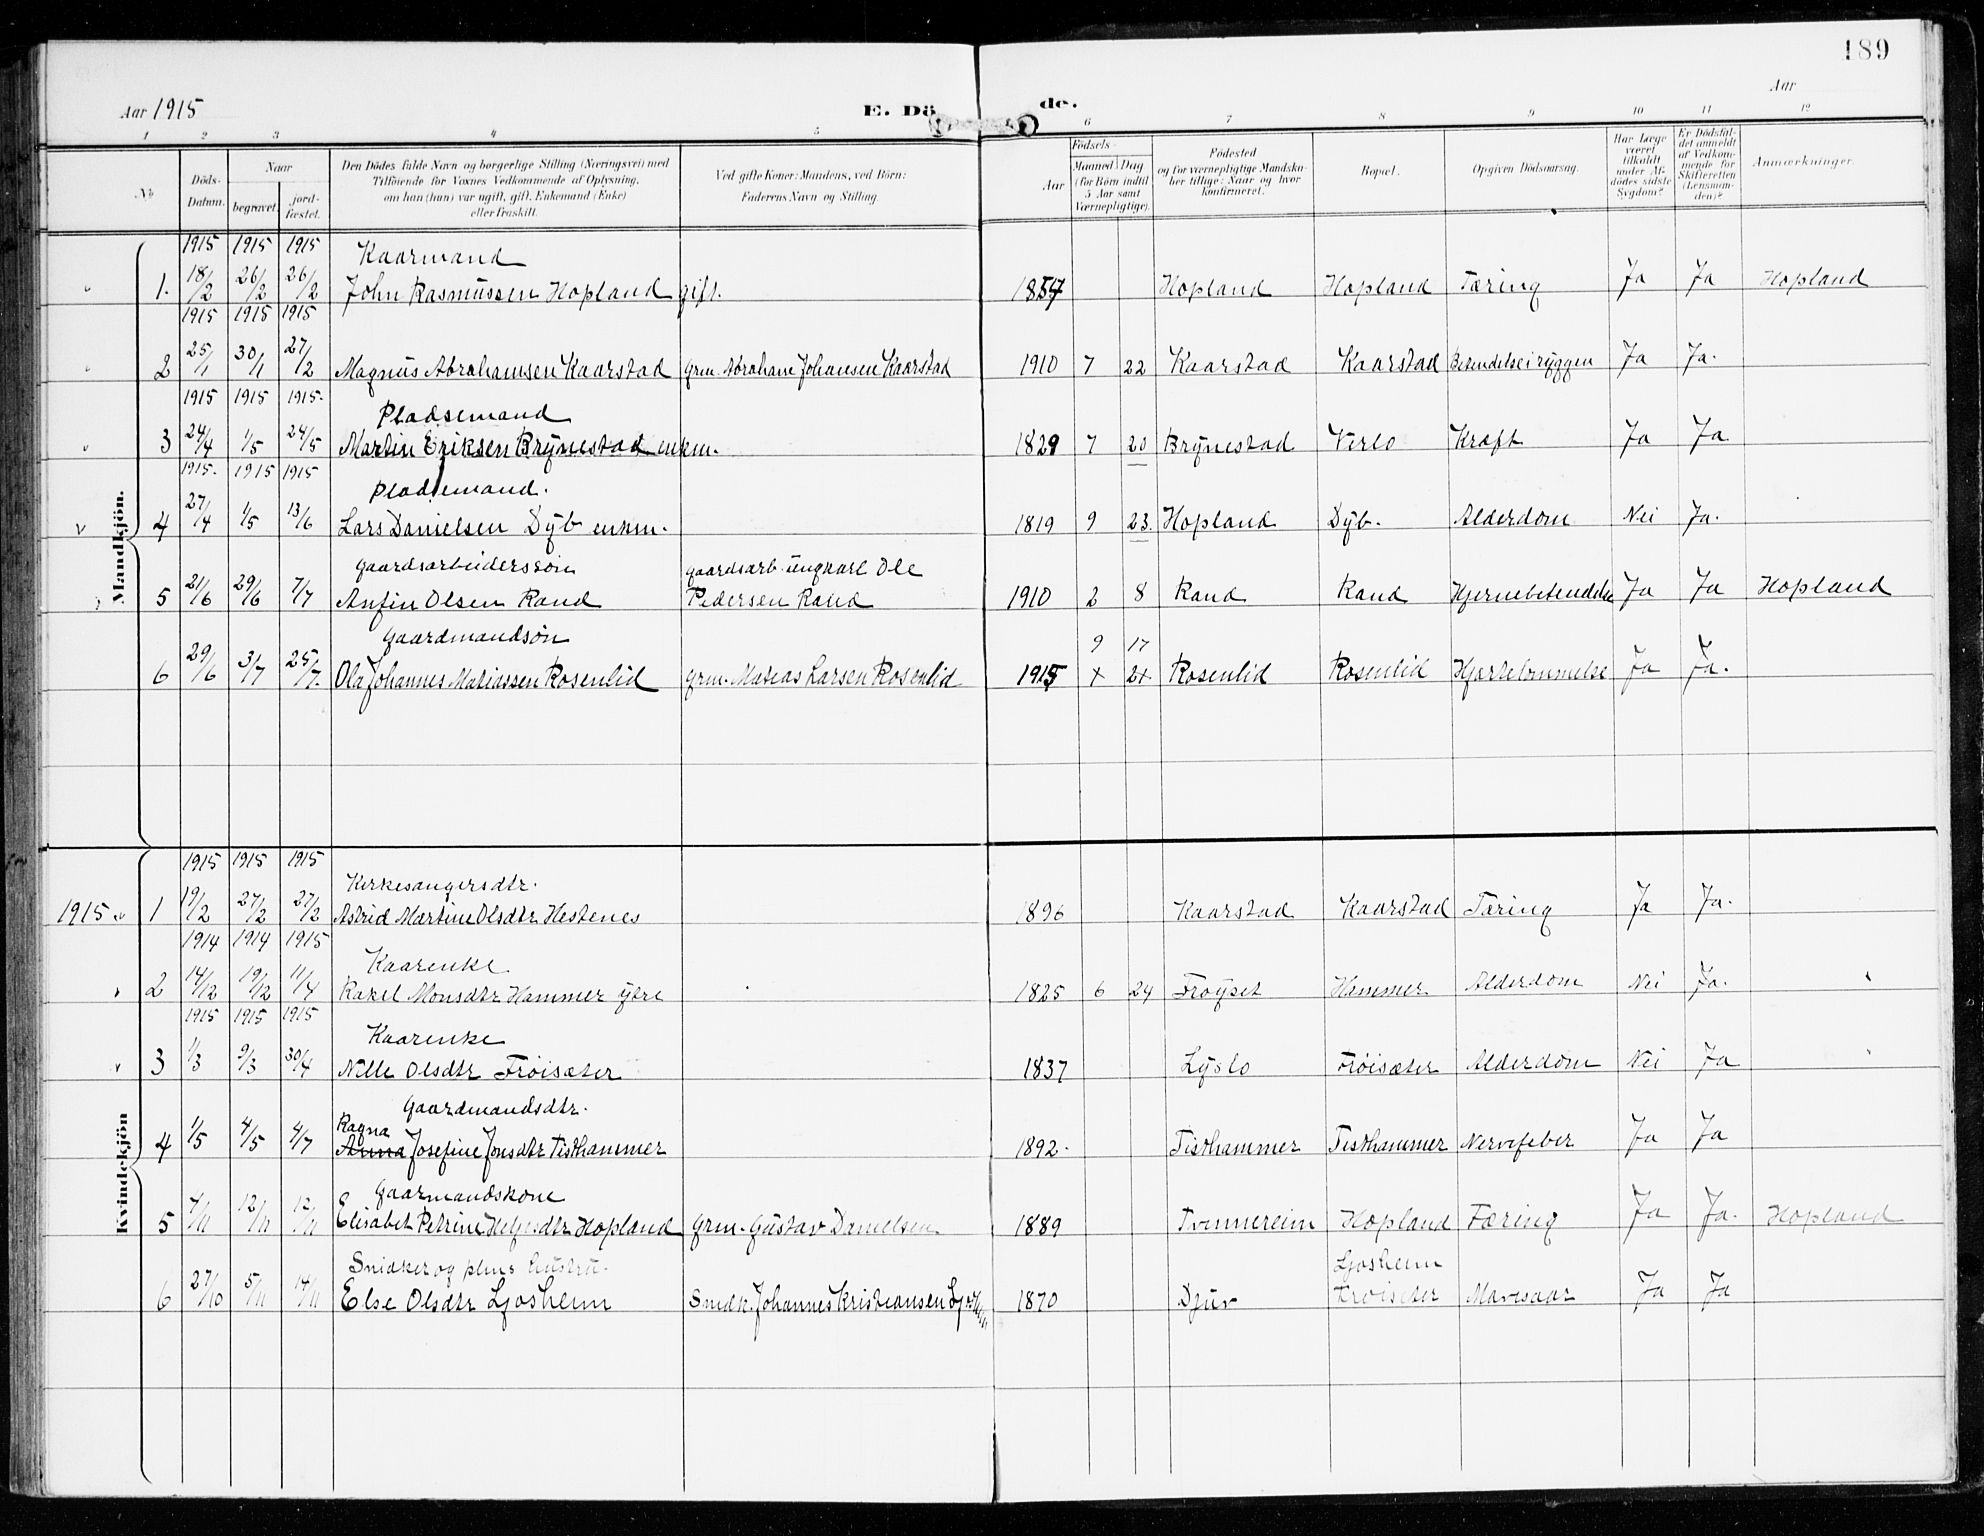 189
Aar 1915
E. Dö de.
Aar
1 2 3 4 5 6 7 8 9 10 11 12
No
Döds-Datum.
Naar
begravet.
jord-fæstet.
Den Dödes fulde Navn og borgerlige Stilling (Næringsvei) med
Tilföiende for Voxnes Vedkommende af Oplysning,
om han (hun) var ugift, gift, Enkemand (Enke)
eller fraskilt.
Ved gifte Koner: Mandens, ved Börn:
Faderens Navn og Stilling.
Födsels-
Aar
Maaned Dag
(for Börn indtil
5 Aar samt
Værnepligtige).
Födested
og for værnepligtige Mandska-
ber tillige: Naar og hvor
konfirmeret.
Bopæl.
Opgiven Dödsaarsag.
Har Læge
været
tilkaldt
under Af-
dödes sidste
Sygdom?
Er Dödsfal-
det anmeldt
af Vedkom-
mende for
Skifteretten
(Lensman-
den)?
Anmærkninger.
Mandkjön.
1915 1915 1915 Kaarmand
1. 18/2 26/2 26/2 John Rasmussen Hopland gift. 1854 Hopland Hopland Tæring Ja Ja Hopland
1915 1915 1915
2 25/1 30/1 27/2 Magnus Abrahamsen Kaarstad grm. Abraham Johansen Kaarstad 1910 7 22 Kaarstad Kaarstad Betendelse i ryggen Ja Ja.
1915 1915 1915. Pladsemand
3 24/4 1/5 24/5 Martin Eriksen Brynestad enkm. 1829 7 20 Brynestad Verlo Kræft Ja Ja
1915. 1915 1915 Pladsemand.
4 27/4 1/5 13/6 Lars Danielsen Dyb enkm. 1819 9 23. Hopland Dyb. Alderdom Nei Ja.
gaardsarbeiderssøn gaardsarb. ungkarl Ole
5 21/6 29/6 7/7 Anfin Olsen Rand Pedersen Rand 1910 2 8 Rand Rand Hjernebetendelse Ja Ja Hopland
Gaardmandsøn 9 17
6 29/6 3/7 25/7. Ola Johannes Matiassen Rosenlid grm. Matias Larsen Rosenlid 1915 Rosenlid Rosenlid Ja Ja.
Kvindekjön
1915 1915 1915 Kirkesangersdtr.
1915 1 19/2 27/2 27/2 Astrid Martine Olsdtr Hestenes 1896 Kaarstad Kaarstad Tæring Ja Ja.
1914 1914 1915 Kaarenke
2 14/12 19/12 11/4 Rakel Monsdtr Hammer ytre 1825 6 24 Frøyset Hammer Alderdom Nei Ja.
1915 1915 1915 Kaarenke
3 1/3 9/3 30/4 Nille Olsdtr Frøisæter 1837 Lyslo Frøisæter Alderdom Nei Ja
Gaardmandsdtr.
Ragna
4 1/5 4/5 4/7 Anna Josefine Jonsdtr Tisthammer 1892. Tisthammer Tisthammer Nervefeber Ja Ja
Gaarmandskone
5 4/11 12/11 12/11 Elisabet Petrine Helgesdtr Hopland grm. Gustav Danielsen 1889 Tvinnereim Hopland Tæring Ja Ja. Hopland
Snidker og hustru. Ljosheim
6 27/10 5/11 14/11 Else Olsdtr Ljosheim Snidk. Johannes Kristiansen 1870 Djuv Frøisæter Mavesaar Ja Ja